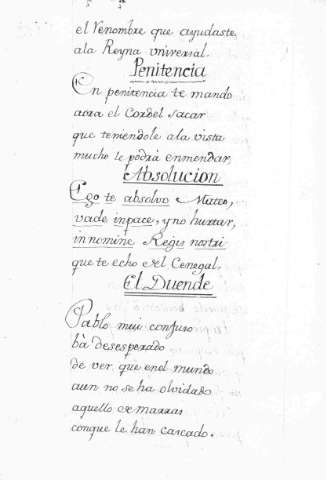 el Renombre que ayudaste
ala Reyna vniversal.
Penitencia
En penitencia te mando
aora el Cordel sacar
que teniendole ala vista
mucho te podrá enmendar,
Absolucion
Ego te absolvo
vade inpace, y no hurtar,
in nomine Regis nostri
que te echo
El Duende
Pablo mui confuso
ba desesperado
de ver, que en el mundo
aun no se ha olvidado
aquello de marras
conque le han cascado.